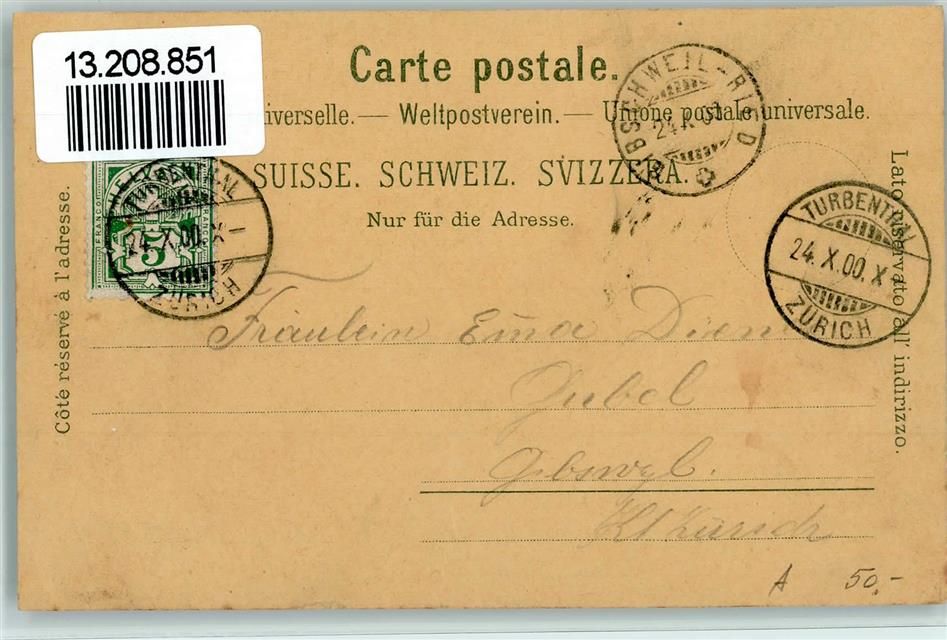 13.208.851
Carte postale.
iverselle. — Weltpostverein. — Unione postale universale.
SUISSE. SCHWEIZ. SVIZZERA.
Nur für die Adresse.
Côté réservé à l'adresse.
Lato riservato all' indirizzo.
FRANCO
5
24.X.00.X–
ZÜRICH
BSCHWEIL-RIED
24.X.00
TURBENTHAL
24.X.00.X
ZÜRICH
Fräulein Em̄a
Gubel
Gibswyl.
Kt Zürich
A 50,-